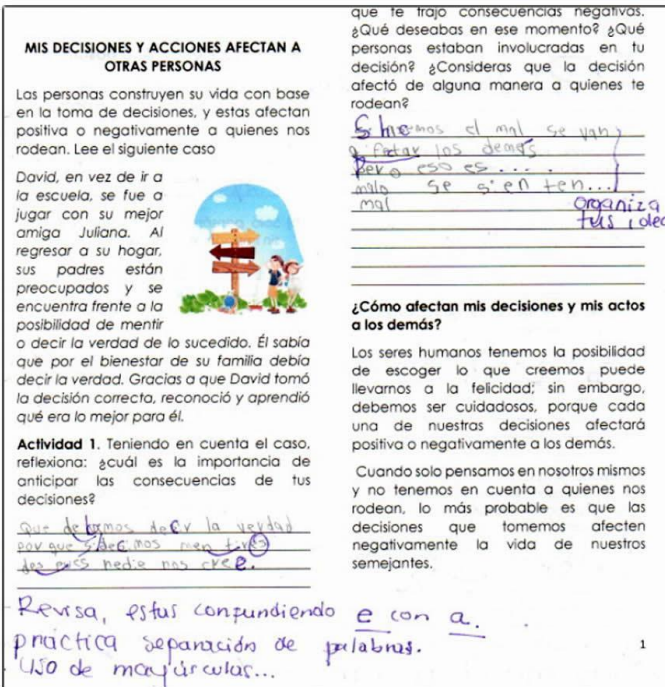 MIS DECISIONES Y ACCIONES AFECTAN A
OTRAS PERSONAS
Las personas construyen su vida con base
en la toma de decisiones, y estas afectan
positiva o negativamente a quienes nos
rodean. Lee el siguiente caso
David, en vez de ir a
la escuela, se fue a
jugar con su mejor
amiga Juliana. Al
regresar a su hogar,
sus padres están
preocupados y se
encuentra frente a la
posibilidad de mentir
o decir la verdad de lo sucedido. Él sabía
que por el bienestar de su familia debía
decir la verdad. Gracias a que David tomó
la decisión correcta, reconoció y aprendió
qué era lo mejor para él.
Actividad 1. Teniendo en cuenta el caso,
reflexiona: ¿cuál es la importancia de
anticipar las consecuencias de tus
decisiones?
Que de bemos decir la verdad
por que si decimos men tiras
des pues nedie nos cree.
Revisa, estas confundiendo e con a.
practica separación de palabras.
uso de mayúsculas...
que te trajo consecuencias negativas.
¿Qué deseabas en ese momento? ¿Qué
personas estaban involucradas en tu
decisión? ¿Consideras que la decisión
afectó de alguna manera a quienes te
rodean?
Si hacemos el mal se van
a fectar los demas
pero eso es ....
malo se sien ten...
mal
organiza
tus
¿Cómo afectan mis decisiones y mis actos
a los demás?
Los seres humanos tenemos la posibilidad
de escoger lo que creemos puede
llevarnos a la felicidad; sin embargo,
debemos ser cuidadosos, porque cada
una de nuestras decisiones afectará
positiva o negativamente a los demás.
Cuando solo pensamos en nosotros mismos
y no tenemos en cuenta a quienes nos
rodean, lo más probable es que las
decisiones que tomemos afecten
negativamente la vida de nuestros
semejantes.
1